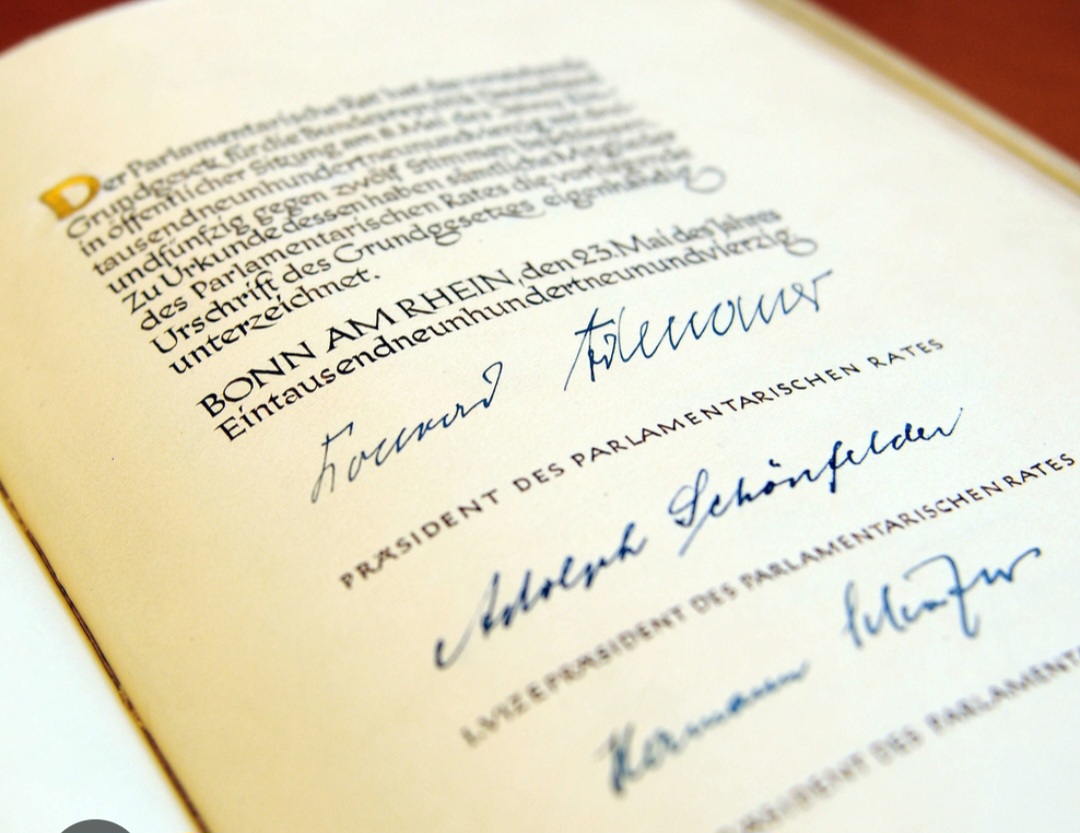 Der Parlamentarische Rat hat das vorstehende
Grundgesetz für die Bundesrepublik Deutschland
in öffentlicher Sitzung am 8. Mai des Jahres
tausendneunhundertneunundvierzig mit
undfünfzig gegen zwölf Stimmen beschlossen.
Zu Urkunde dessen haben sämtliche Mitglieder
des Parlamentarischen Rates die vorliegende
Urschrift des Grundgesetzes eigenhändig
unterzeichnet.
BONN AM RHEIN, den 23. Mai des Jahres
Eintausendneunhundertneunundvierzig
Konrad Adenauer
PRÄSIDENT DES PARLAMENTARISCHEN RATES
Adolph Schönfelder
I. VIZEPRÄSIDENT DES PARLAMENTARISCHEN RATES
Hermann Schäfer
DES PARLAMENT